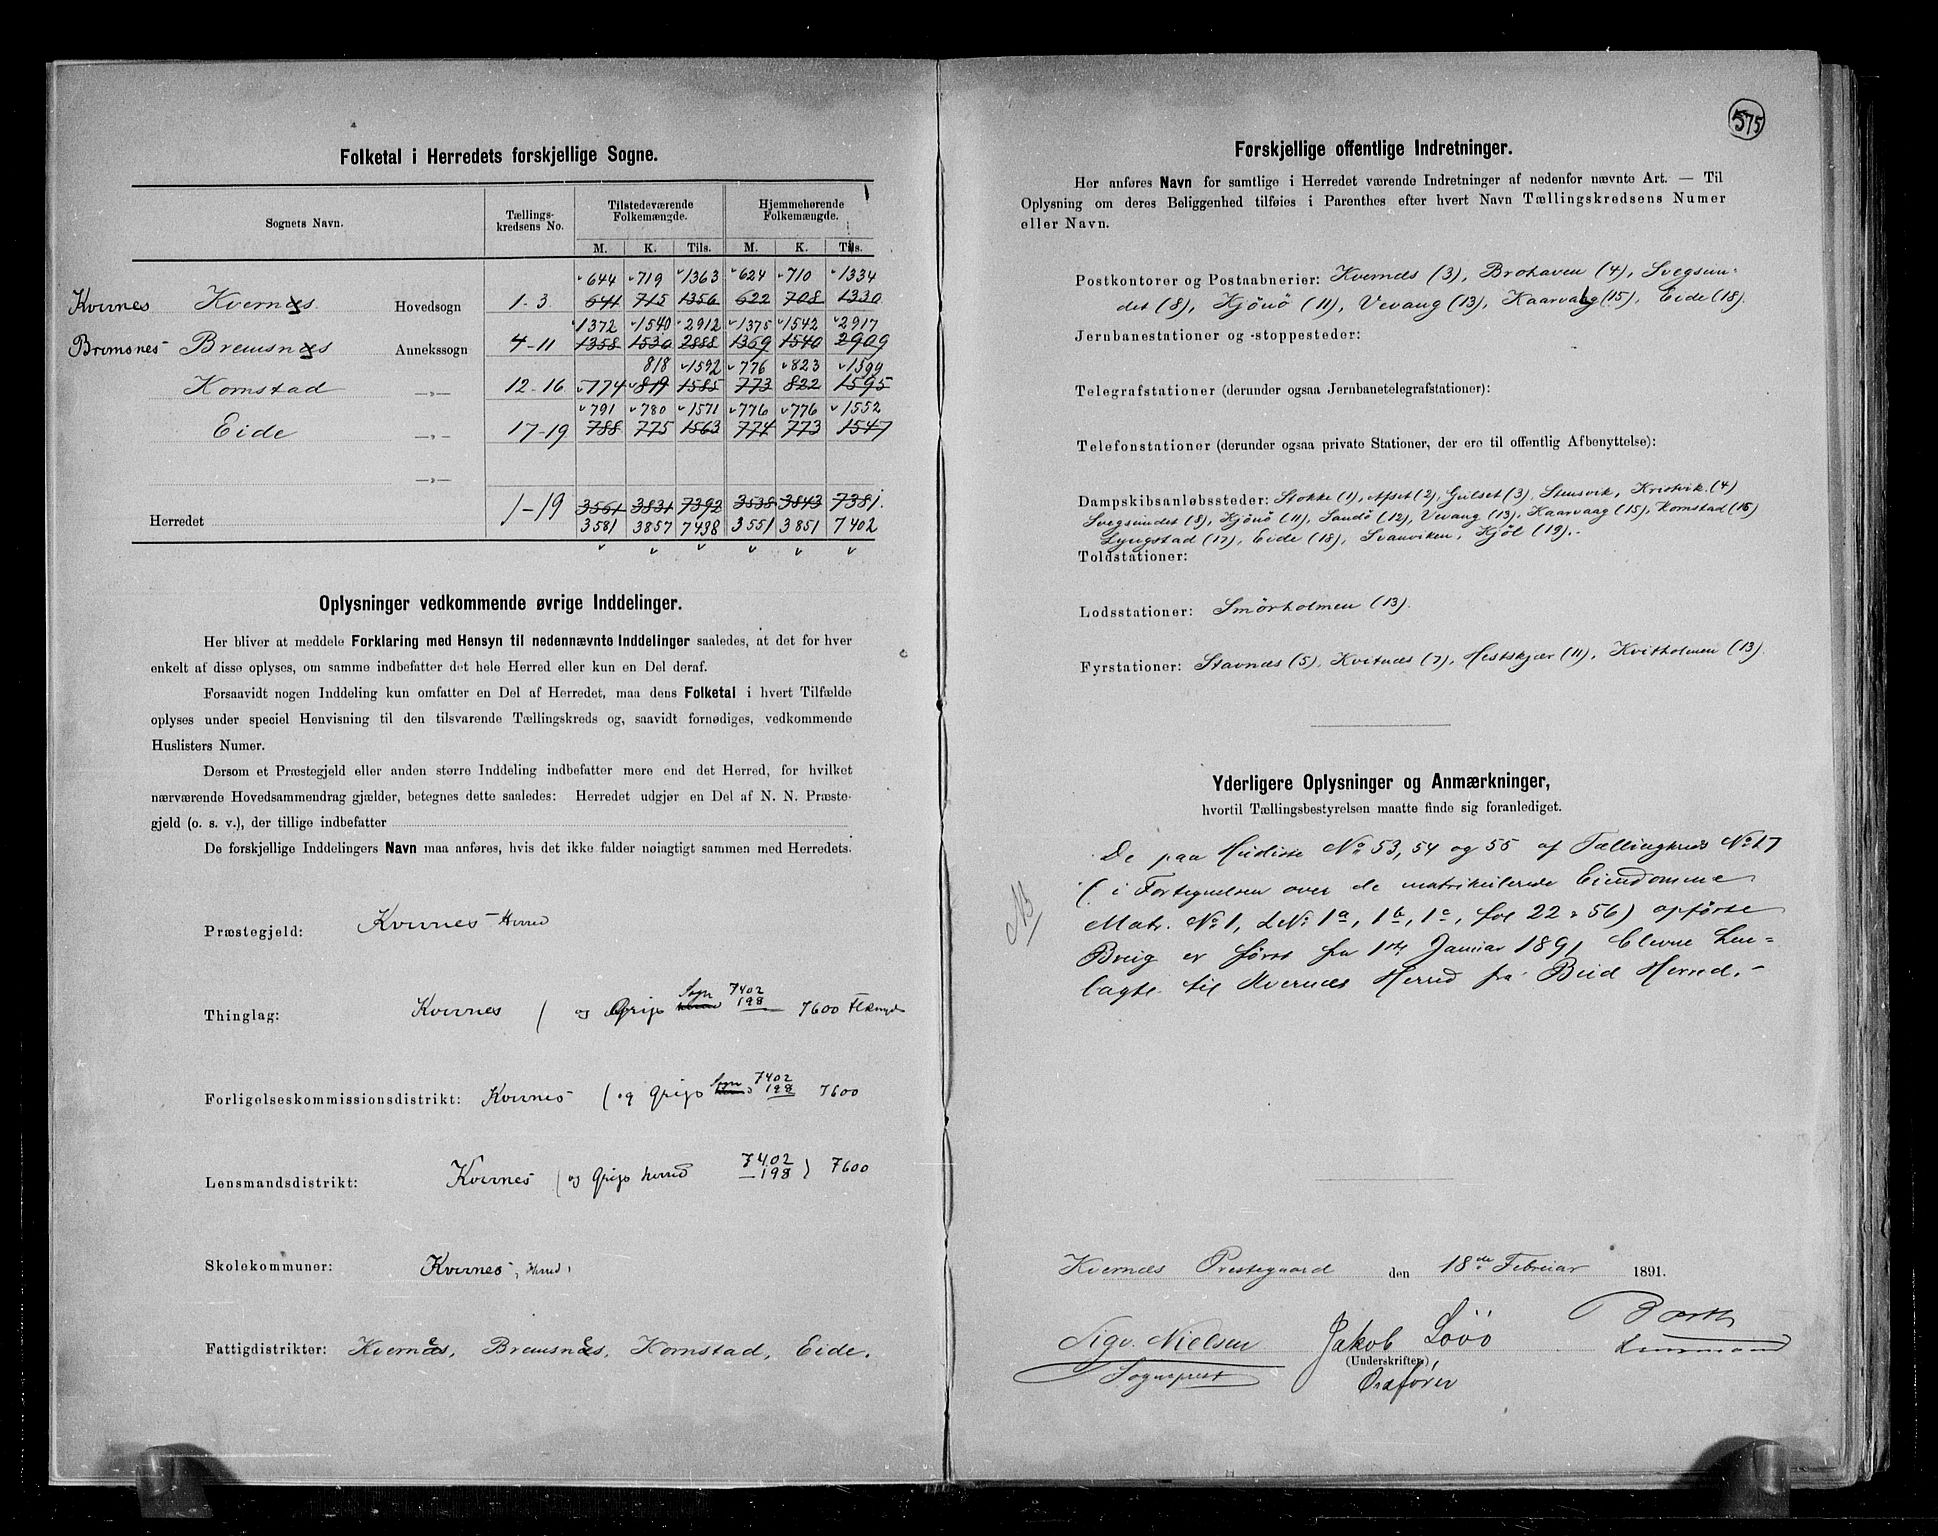 Folketal i Herredets forskjellige Sogne.
Sognets Navn. Tællings-kredsens No. Tilstedeværende Folkemængde. Hjemmehørende Folkemængde.
M. K. Tils. M. K. Tils.
644 719 1363 624 710 1334
Kvernes Kvernæs Hovedsogn 1-3 641 715 1356 622 708 1330
1372 1540 2912 1375 1542 2917
Bremsnes Bremsnæs Annekssogn 4-11 1358 1530 2888 1369 1540 2909
818 1592 776 823 1599
Kornstad —„— 12-16 774 819 1585 773 822 1595
791 780 1571 776 776 1552
Eide —„— 17-19 788 775 1563 774 773 1547
—„—
Herredet 1-19 3561 3831 7392 3538 3843 7381
3581 3857 7438 3551 3851 7402
Oplysninger vedkommende øvrige Inddelinger.
Her bliver at meddele Forklaring med Hensyn til nedennævnte Inddelinger saaledes, at det for hver
enkelt af disse oplyses, om samme indbefatter det hele Herred eller kun en Del deraf.
Forsaavidt nogen Inddeling kun omfatter en Del af Herredet, maa dens Folketal i hvert Tilfælde
oplyses under speciel Henvisning til den tilsvarende Tællingskreds og, saavidt fornødiges, vedkommende
Huslisters Numer.
Dersom et Præstegjeld eller anden større Inddeling indbefatter mere end det Herred, for hvilket
nærværende Hovedsammendrag gjælder, betegnes dette saaledes: Herredet udgjør en Del af N. N. Præste-
gjeld (o. s. v.), der tillige indbefatter
De forskjellige Inddelingers Navn maa anføres, hvis det ikke falder nøiagtigt sammen med Herredets.
Præstegjeld: Kvernes Herred
Thinglag: Kvernes ( og Grip Sogn 7402 198 7600
Forligelseskommissionsdistrikt: Kvernes ( og Grip Sogn 7402 198 7600
Lensmandsdistrikt: Kvernes ( og Grips Herred 7402 198 ) 7600
Skolekommuner: Kvernes Herred
Fattigdistrikter: Kvernæs, Bremsnæs, Kornstad, Eide.
575
Forskjellige offentlige Indretninger.
Her anføres Navn for samtlige i Herredet værende Indretninger af nedenfor nævnte Art. — Til
Oplysning om deres Beliggenhed tilføies i Parenthes efter hvert Navn Tællingskredsens Numer
eller Navn.
Postkontorer og Postaabnerier: Kvernæs (3), Brohaven (4), Svegsun-
det (8), Kjönö (11), Vevang (13), Kaarvaag (15), Eide (18).
Jernbanestationer og -stoppesteder:
Telegrafstationer (derunder ogsaa Jernbanetelegrafstationer):
Telefonstationer (derunder ogsaa private Stationer, der ere til offentlig Afbenyttelse):
Dampskibsanløbssteder: Stokke (1), Apset (2), Gulset (3), Stensvik, Kristvik (4)
Svegsundet (8), Kjönö (11), Sandö (12), Vevang (13), Kaarvaag (15), Kornstad (16)
Lyngstad (17), Eide (18), Svanviken, Kjøl (19).
Toldstationer:
Lodsstationer: Smörholmen (13).
Fyrstationer: Stavnæs (5), Kvitnæs (7), Hestskjær (11), Kvitholmen (13).
Yderligere Oplysninger og Anmærkninger,
hvortil Tællingsbestyrelsen maatte finde sig foranlediget.
De paa Husliste No 53, 54 og 55 af Tællingkreds No 17
( i Fortegnelsen over de matrikulerede Eiendomme
NB
Matr. No 1, LNo 1a, 1b, 1c, fol 22 56) opførte
Brug er först fra 1ste Januar 1891 blevne hen-
lagte til Kvernæs Herred fra Bud Herred.
Kvernæs Prestegaard den 18de Februar 1891.
Sigv. Nielsen Jakob Lövö
(Underskrifter)
Sogneprest Ordförer Lensmand